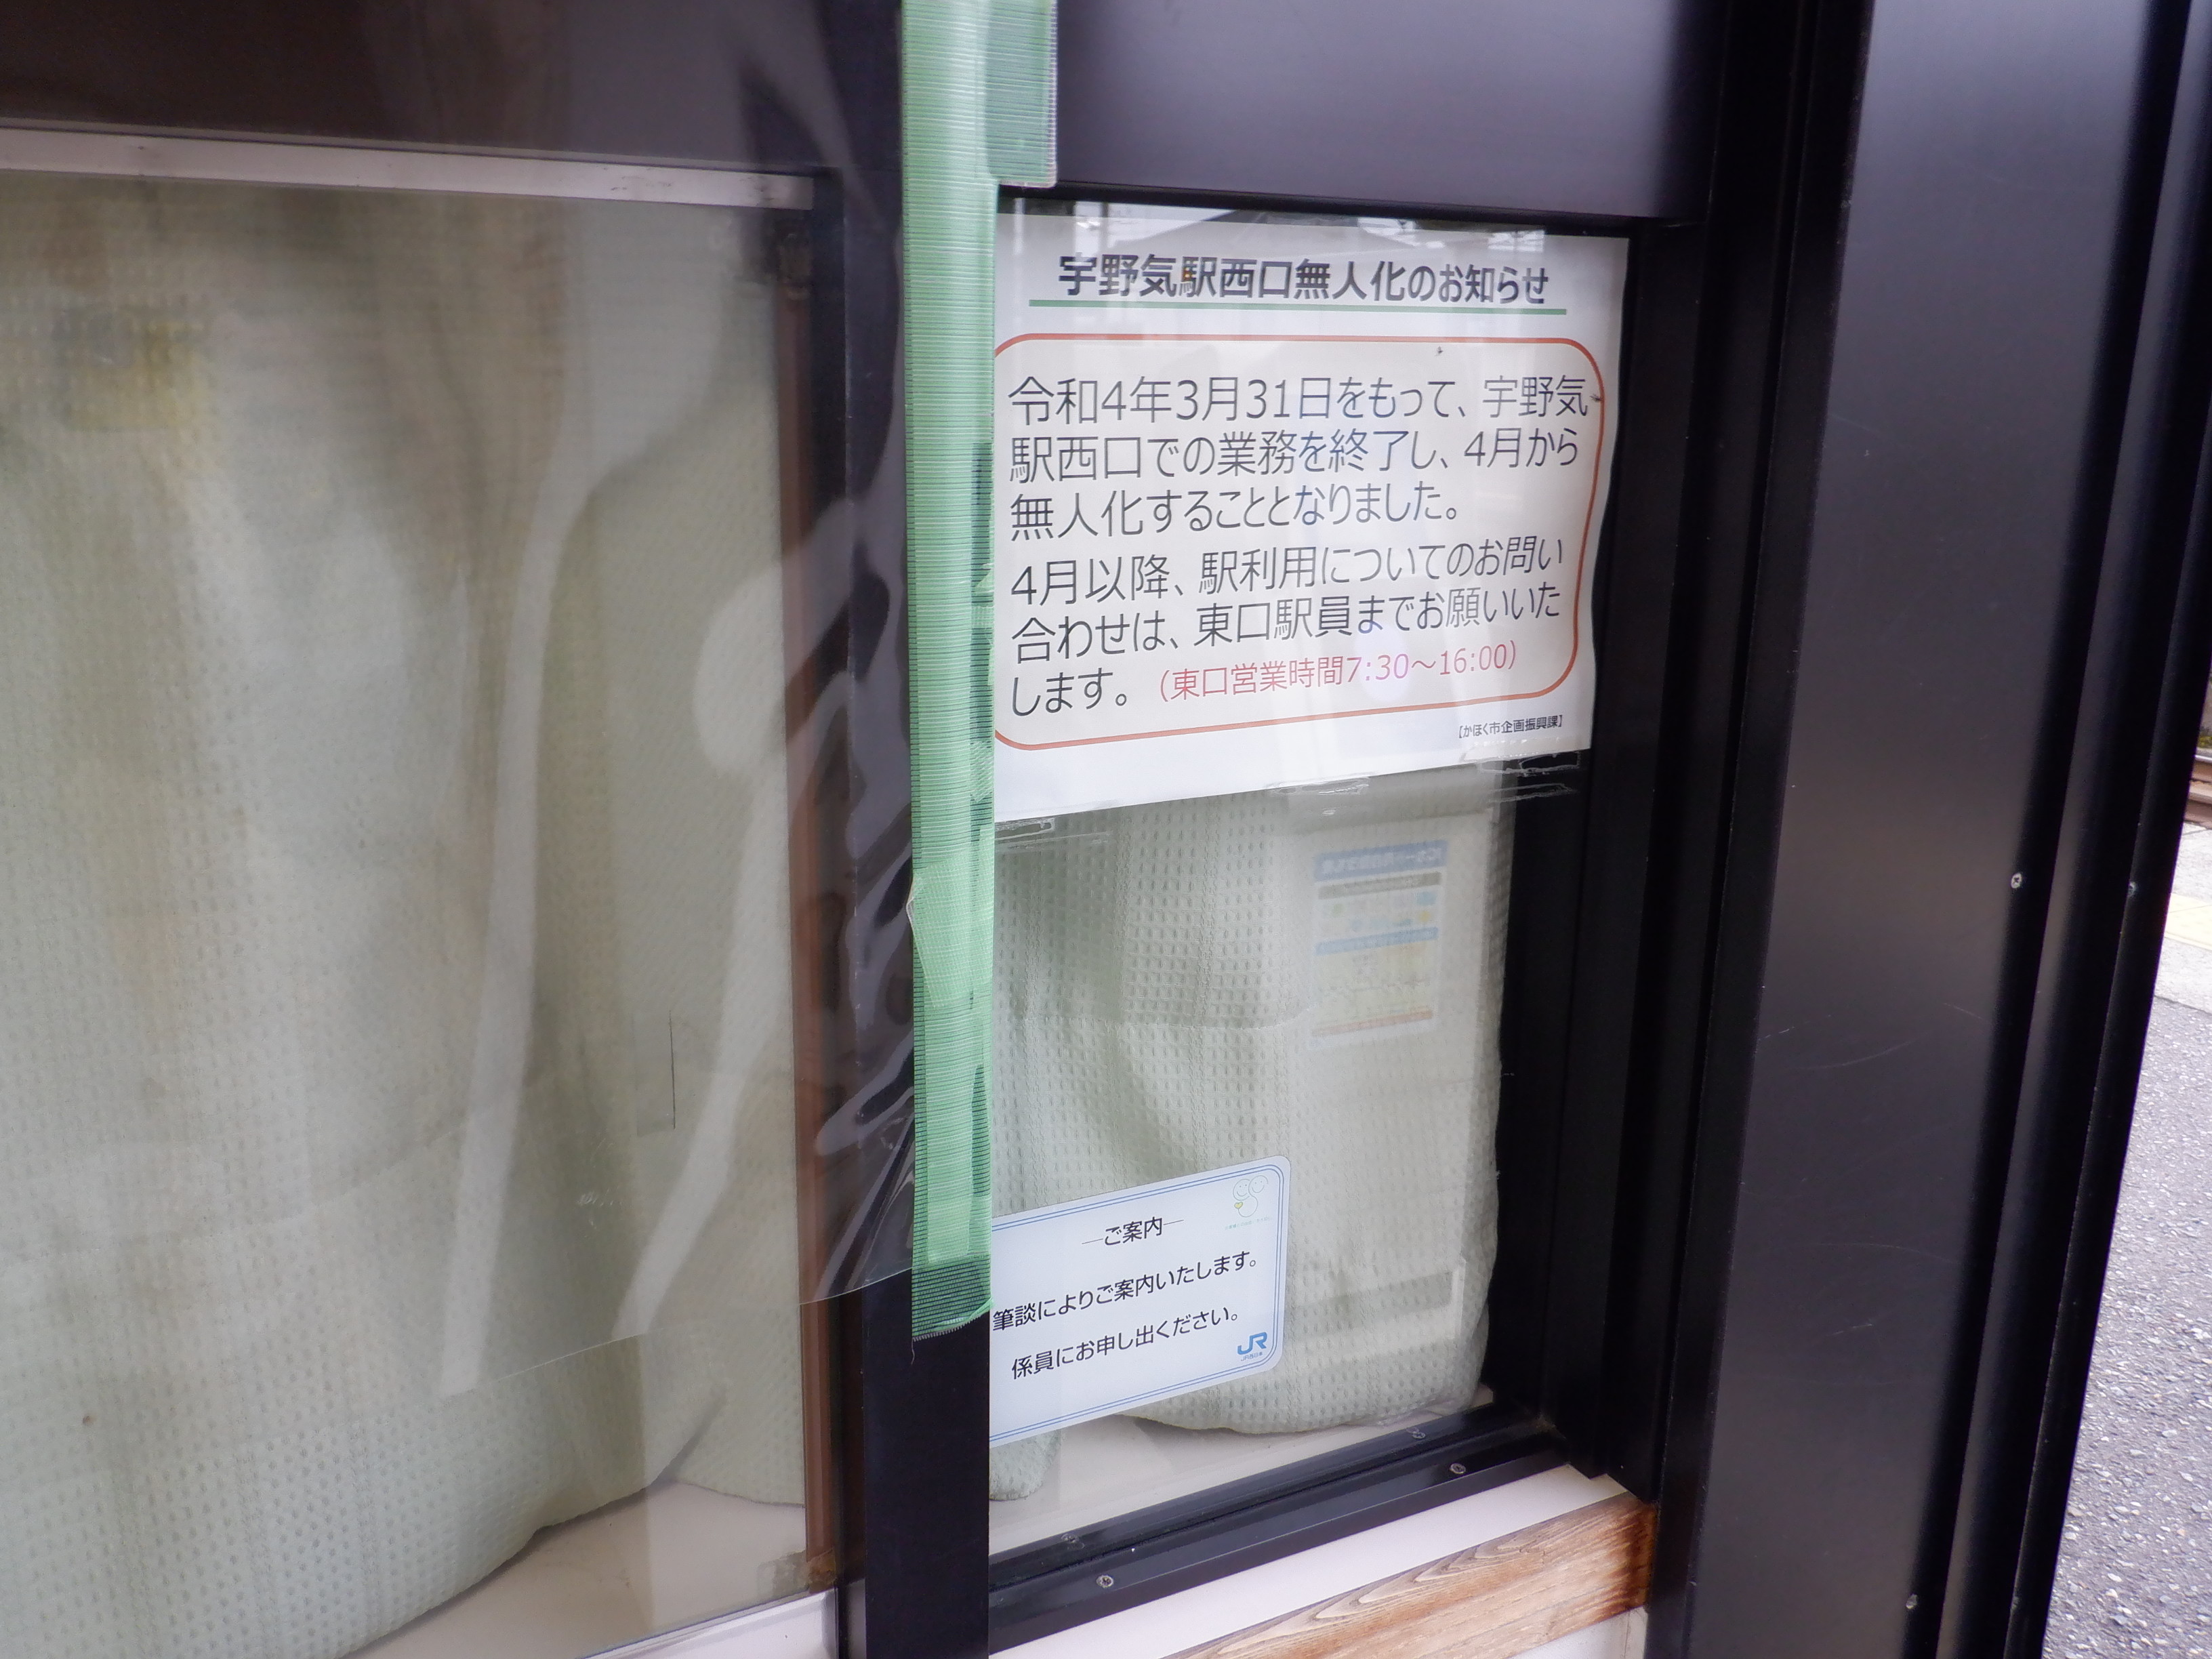 宇野気駅西口無人化のお知らせ
令和4年3月31日をもって、宇野気
駅西口での業務を終了し、4月から
無人化することとなりました。
4月以降、駅利用についてのお問い
合わせは、東口駅員までお願いいた
します。（東口営業時間7:30～16:00）
【かほく市企画振興課】
―ご案内―
筆談によりご案内いたします。
係員にお申し出ください。
JR
JR西日本